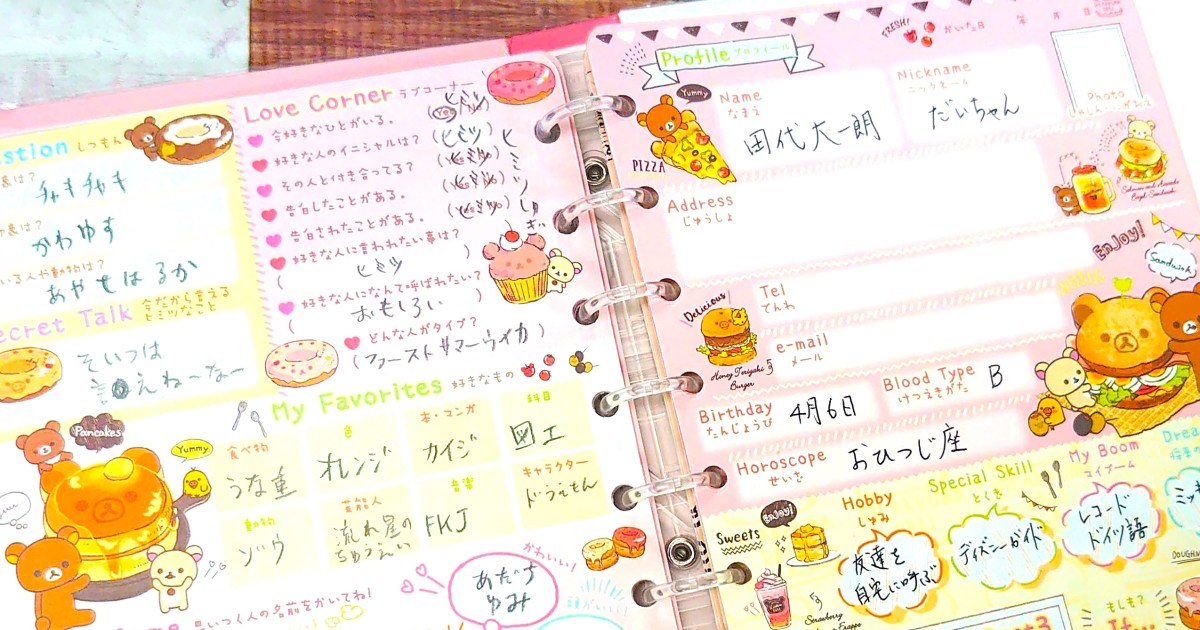 Love Corner ラブコーナー
今好きなひとがいる。
好きな人のイニシャルは?
(ヒミツ)
その人と付き合ってる?
告白したことがある。
告白されたことがある。
好きな人に言われたい事は?
ヒミツ
好きな人になんて呼ばれたい?
おもしろい
どんな人がタイプ?
(ファーストサマーウイカ)
estion しつもん
チャキチャキ
かわゆす
いる人や動物は?
あやせはるか
ecret Talk 今だから言える
ヒミツなこと
そいつは
言えねーなー
My Favorites 好きなもの
Pancakes
Yummy
食べ物
うな重
色
オレンジ
本・マンガ
カイジ
科目
図工
動物
ゾウ
芸能人
流れ星の
ちゅうえい
音楽
FKJ
キャラクター
ドラえもん
かわいい!
あだち
ゆみ
頭がいい!
思いつく人の名前をかいてね!
Profile プロフィール
FRESH!
かいた日 年 月 日
Yummy
PIZZA
Name
なまえ
田代大一朗
Nickname
ニックネーム
だいちゃん
Photo
Address
じゅうしょ
Salmon and Avocado
Bagel Sandwich
Enjoy!
Sandwich
Delicious
Honey Teriyaki
Burger
Tel
でんわ
e-mail
メール
Birthday
たんじょうび
4月6日
Blood Type
けつえきがた
B
Horoscope
せいざ
おひつじ座
Sweets
Enjoy!
Hobby
しゅみ
友達を
自宅に呼ぶ
Special Skill
とくぎ
ディズニーガイド
My Boom
マイブーム
レコード
ドイツ語
Drea
ミッ
Strawberry
Frappe
DOUGHN
もしも?
If...